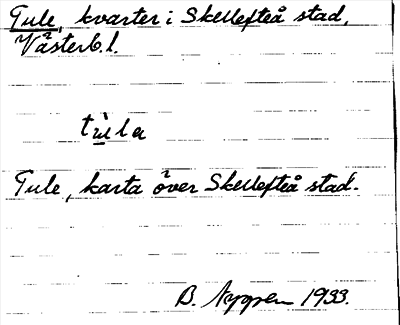 Tule, kvarter i Skellefteå stad,
Västerb. l.
Tule, karta över Skellefteå stad.
B. 1933.